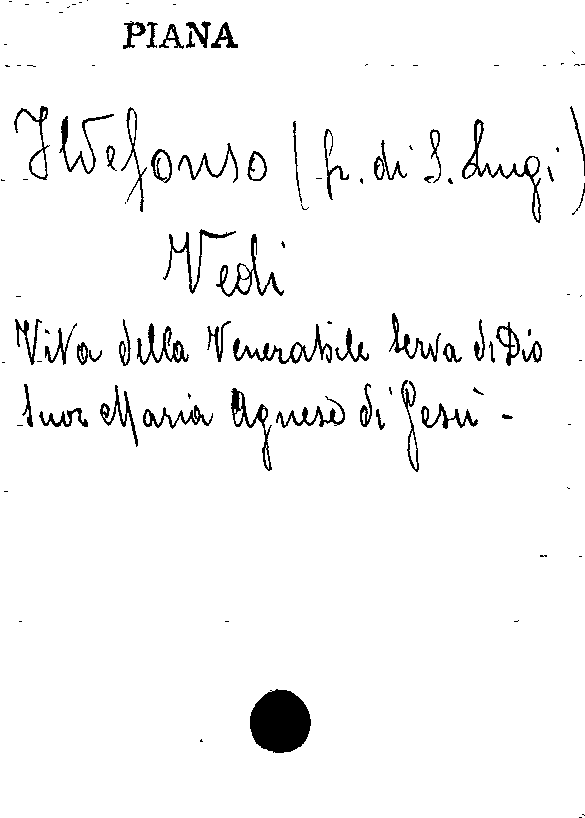 PIANA
Ildefonso (fr. di S. Luigi)
Vedi
Vita della Venerabile Serva di Dio
Suor Maria Agnese di Gesù -